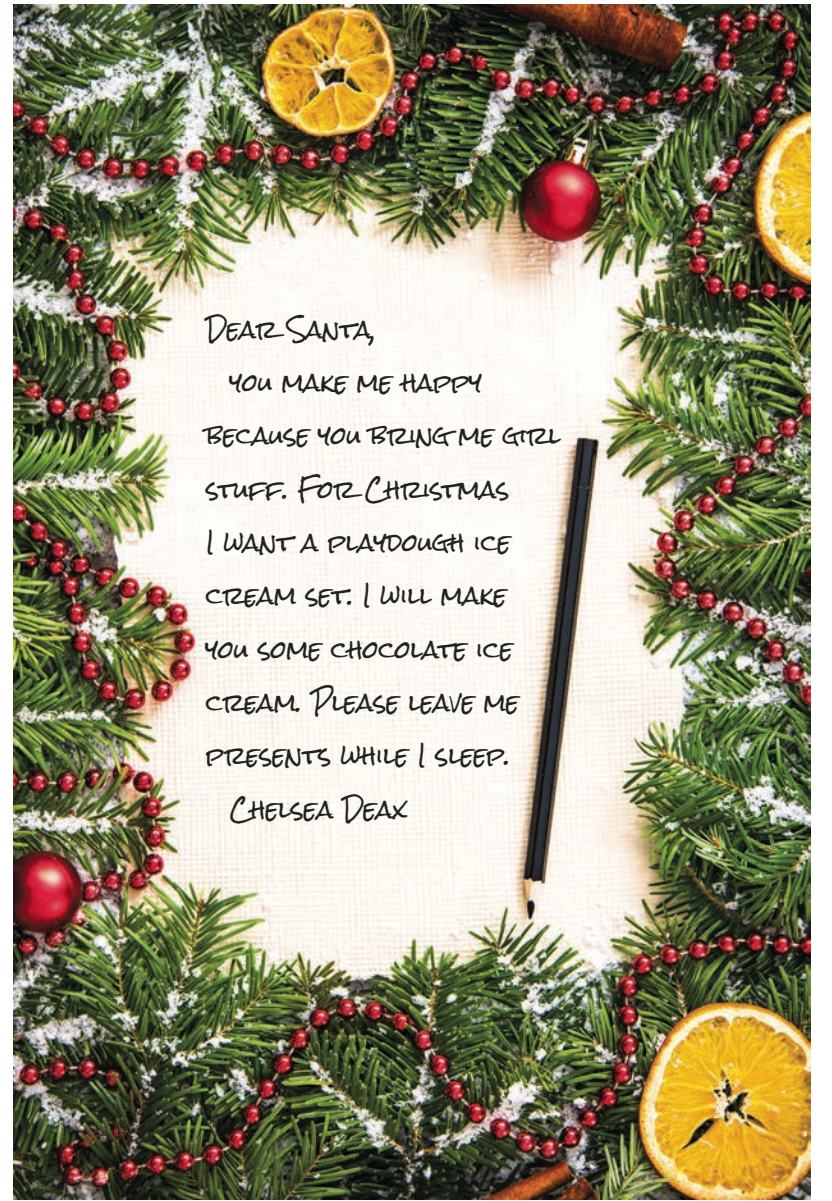 Dear Santa,
you make me happy
because you bring me girl
stuff. For Christmas
I want a playdough ice
cream set. I will make
you some chocolate ice
cream. Please leave me
presents while I sleep.
Chelsea Deax